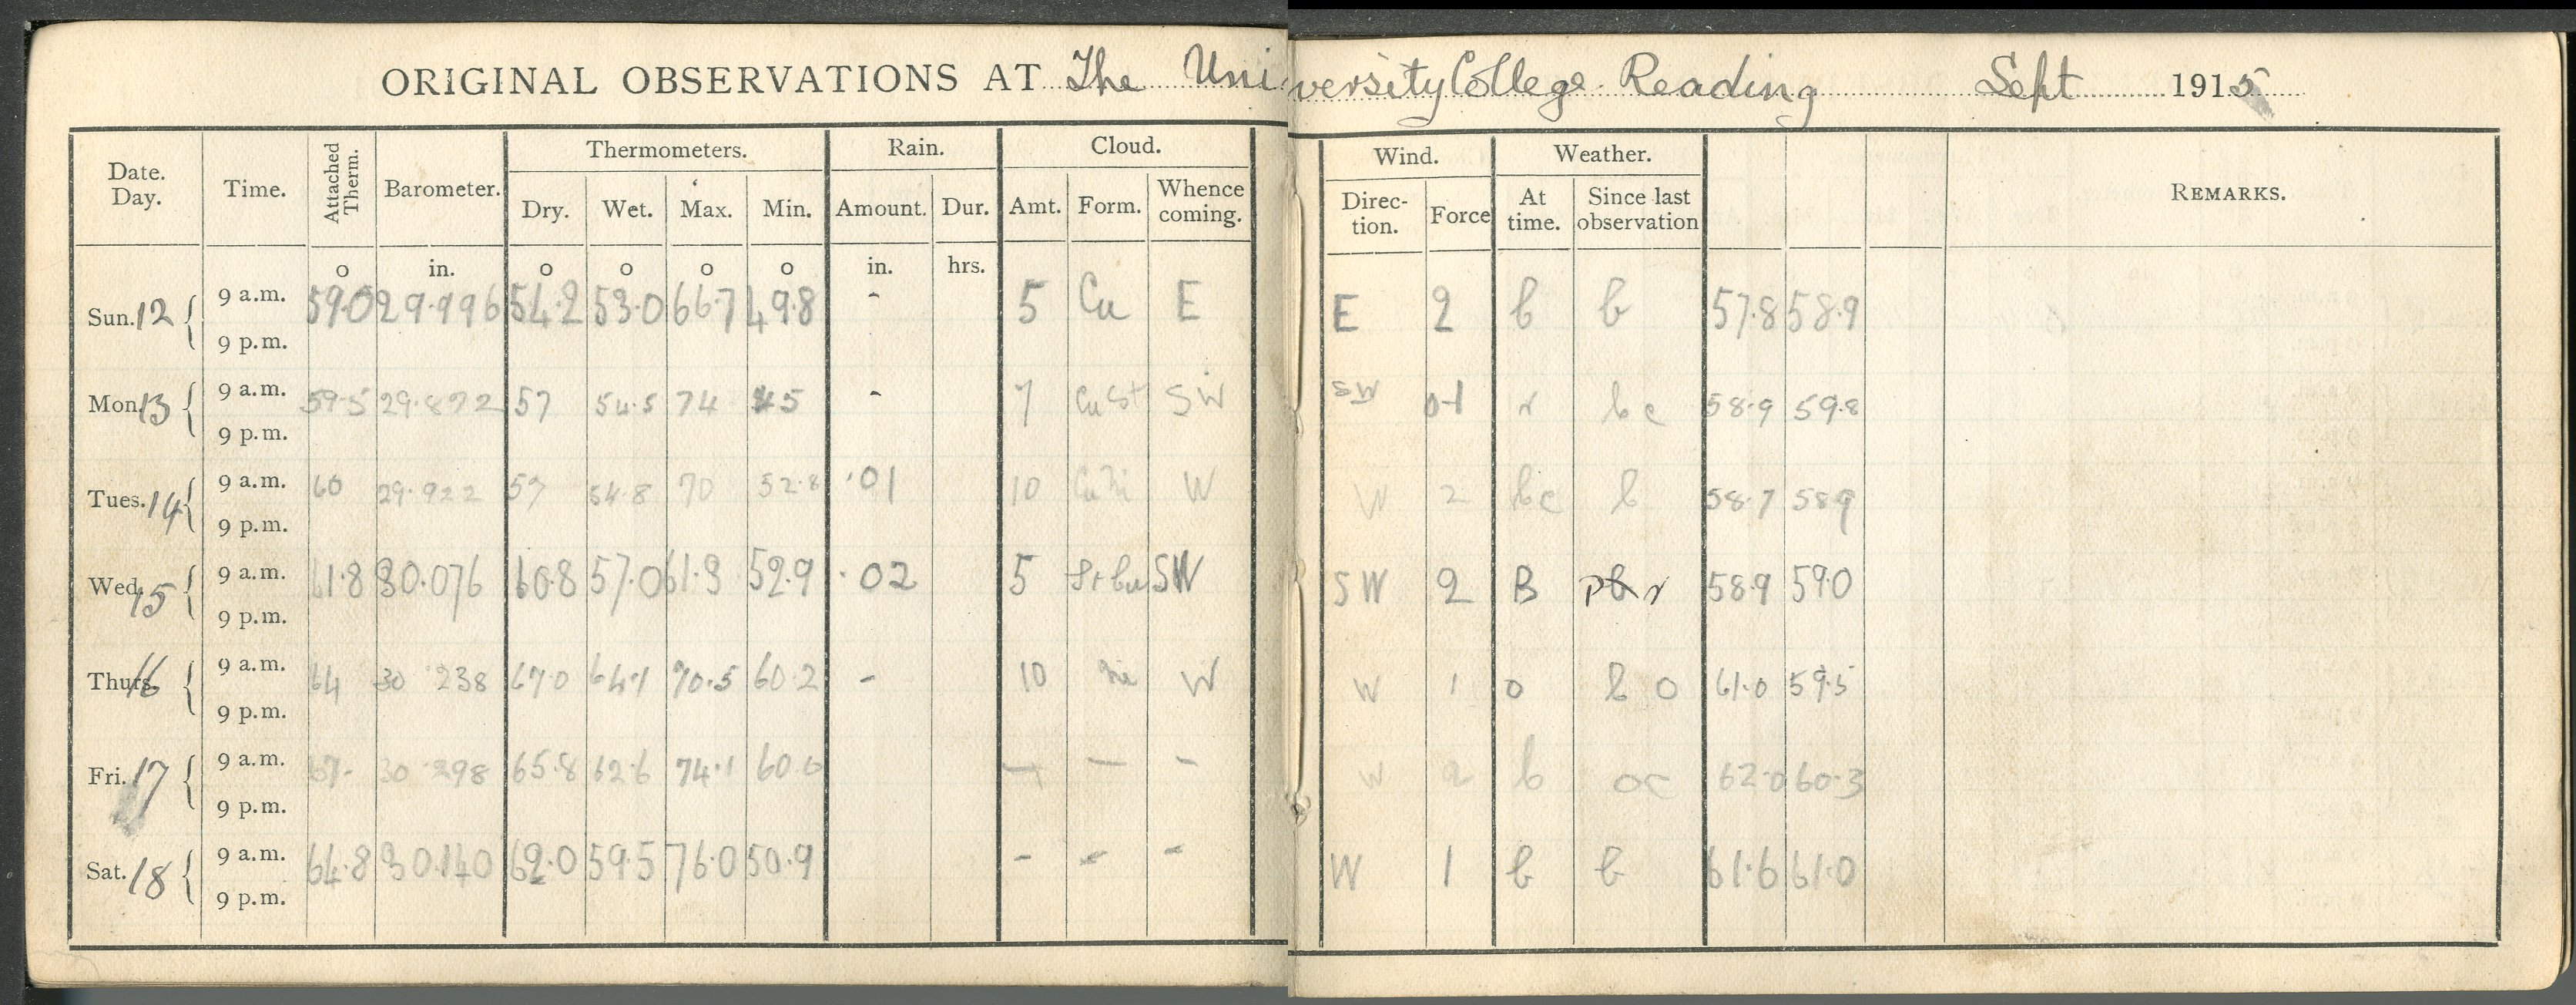 ORIGINAL OBSERVATIONS AT The University College Reading Sept 1915
Date. Day. Time. Attached Therm. Barometer. Thermometers. Rain. Cloud. Wind. Weather. REMARKS.
Dry. Wet. Max. Min. Amount. Dur. Amt. Form. Whence coming. Direc- tion. Force At time. Since last observation
o in. o o o o in. hrs.
Sun. 12 9 a.m. 59.0 29.996 54.2 53.0 66.7 49.8 - 5 Cu E E 2 b b 57.8 58.9
9 p.m.
Mon. 13 9 a.m. 59.5 29.872 57 54.5 74 45 - 7 Cu St SW SW 0-1 r b c 58.9 59.8
9 p.m.
Tues. 14 9 a.m. 60 29.922 57 54.8 70 52.8 .01 10 Cu Ni W W 2 bc b 58.7 58.9
9 p.m.
Wed. 15 9 a.m. 61.8 30.076 60.8 57.0 61.3 52.9 .02 5 St Cu SW SW 2 B r 58.9 59.0
9 p.m.
Thurs. 16 9 a.m. 64 30 .238 67.0 64.1 70.5 60.2 - 10 Ni W W 1 o b o 61.0 59.5
9 p.m.
Fri. 17 9 a.m. 67- 30 .298 65.8 62.6 74.1 60.6 - - - W 2 b oc 62.0 60.3
9 p.m.
Sat. 18 9 a.m. 64.8 30.140 62.0 59.5 76.0 50.9 - - - W 1 b b 61.6 61.0
9 p.m.